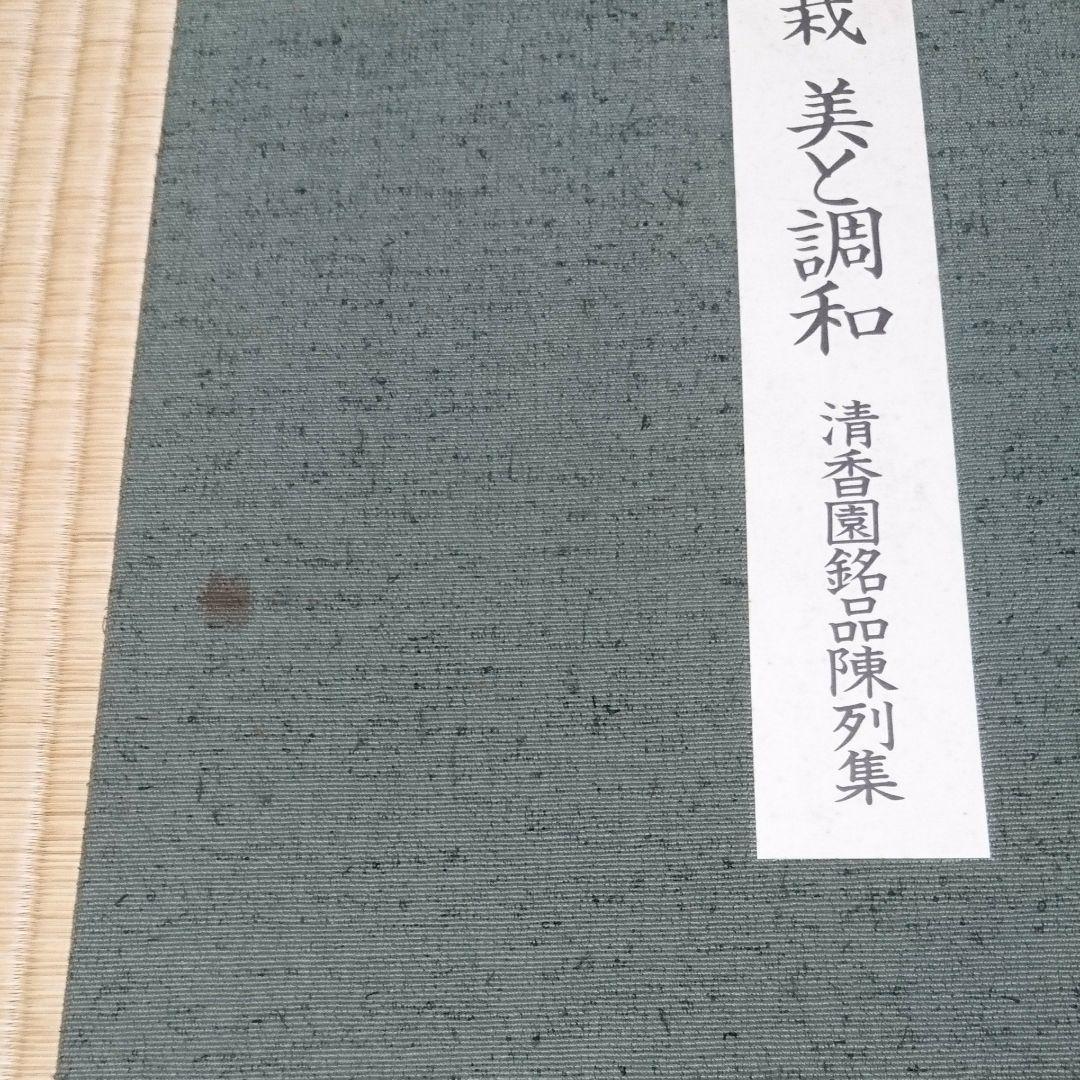 栽 美と調和
清香園銘品陳列集